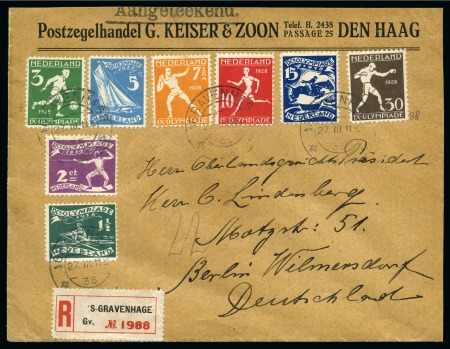 Aangeteekend.
Postzegelhandel G. KEISER & ZOON Telef. H. 2438 PASSAGE 25 DEN HAAG
3 NEDERLAND 1928 IX OLYMPIADE
5 NEDERLAND
NEDERLAND 7½ 1928 IX OLYMPIADE
NEDERLAND 10 1928 IX OLYMPIADE
15 IX OLYMPIADE 1928 NEDERLAND
NEDERLAND 1928 30 IX OLYMPIADE
2 ct NEDERLAND
1½ NEDERLAND
27.III.11
Herrn Oberlandsgerichts Präsident
Herrn C. Lindenberg
Motzstr: 51.
Berlin Wilmersdorf
Deutschland
R 'S-GRAVENHAGE
Gv. № 1988